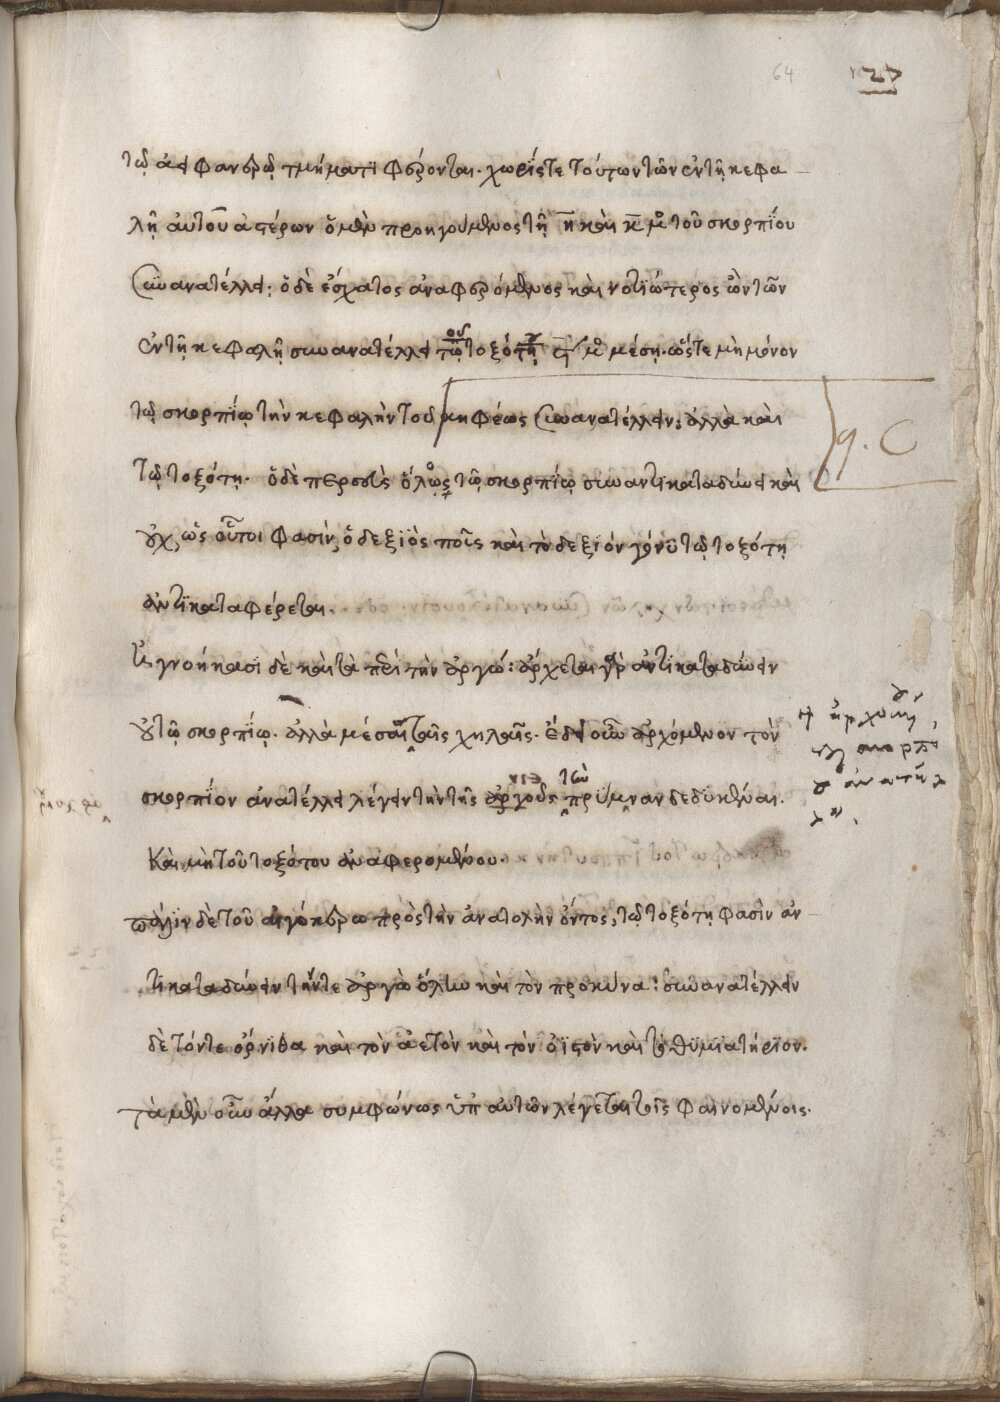 64 127
τῷ ἀεὶ φανερῷ τμήματι φέρονται. χωρίς τε τούτων τῶν ἐν τῇ κεφα
λῇ αὐτοῦ ἀστέρων ὁ μὲν προηγούμενος τῇ η̅ καὶ κ̅ μο τοῦ σκορπίου
συνανατέλλει· ὁ δὲ ἔσχατος ἀναφερόμενος καὶ νοτιώτερος ὢν τῶν
ἐν τῇ κεφαλῇ συνανατέλλει τῷ τοξότῃ μο μέσῃ. ὥστε μὴ μόνον
τῷ σκορπίῳ τὴν κεφαλὴν τοῦ κηφέως συνανατέλλειν· ἀλλὰ καὶ
τῷ τοξότῃ. ὁ δὲ περσεὺς ὅλως τῷ σκορπίῳ συναντικαταδύνει καὶ
9. C
οὐχ ὡς οὗτοι φασίν, ὁ δεξιὸς ποῦς καὶ τὸ δεξιὸν γόνυ τῷ τοξότῃ
ἀντικαταφέρεται.
ἠγνοήκασι δὲ καὶ τὰ περὶ τὴν ἀργώ: ἄρχεται γὰρ ἀντικαταδύνειν
οὐ τῷ σκορπίῳ. ἀλλὰ μέσαις ταῖς χηλαῖς. ἔδει οὖν ἀρχόμενον τὸν
σκορπίον ἀνατέλλει λέγειν τὴν τῆς ἀργοῦς πρύμναν δεδυκέναι.
Καὶ μὴ τοῦ τοξότου ἀναφερομένου.
πάλιν δὲ τοῦ αἰγόκερω πρὸς τὴν ἀνατολὴν ὄντος, τῷ τοξότῃ φασὶν ἀν
τικαταδύνειν τήν τε ἀργὼ ὅλην καὶ τὸν προκύνα: συνανατέλλειν
δὲ τόν τε ὄρνιθα καὶ τὸν ἀετὸν καὶ τὸν ὀϊστὸν καὶ τὸ θυμιατήριον.
τὰ μὲν οὖν ἄλλα συμφώνως ὑπ αὐτῶν λέγεται τοῖς φαινομένοις.